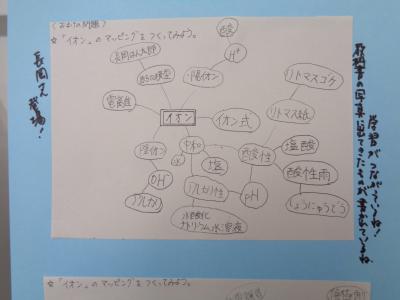 ＜おまけの問題＞
☆「イオン」のマッピングをつくってみよう。
酸
長岡はんたろう
H⁺
原子の模型
陽イオン
リトマスゴケ
電離
イオン
イオン式
リトマス紙
陰イオン
中和
水
塩
酸性
塩酸
酸性雨
OH⁻
アルカリ性
pH
しょうにゅうどう
アルカリ
水酸化
ナトリウム水溶液
長岡又登場！
学習がつながっているね！
教科書の写真に出てきたものが書かれているね
☆「イオン」のマッピングをつくってみよう。